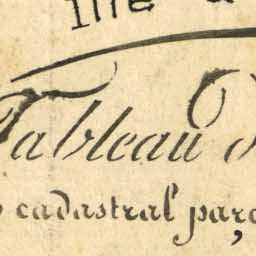 Tableau
cadastral parç